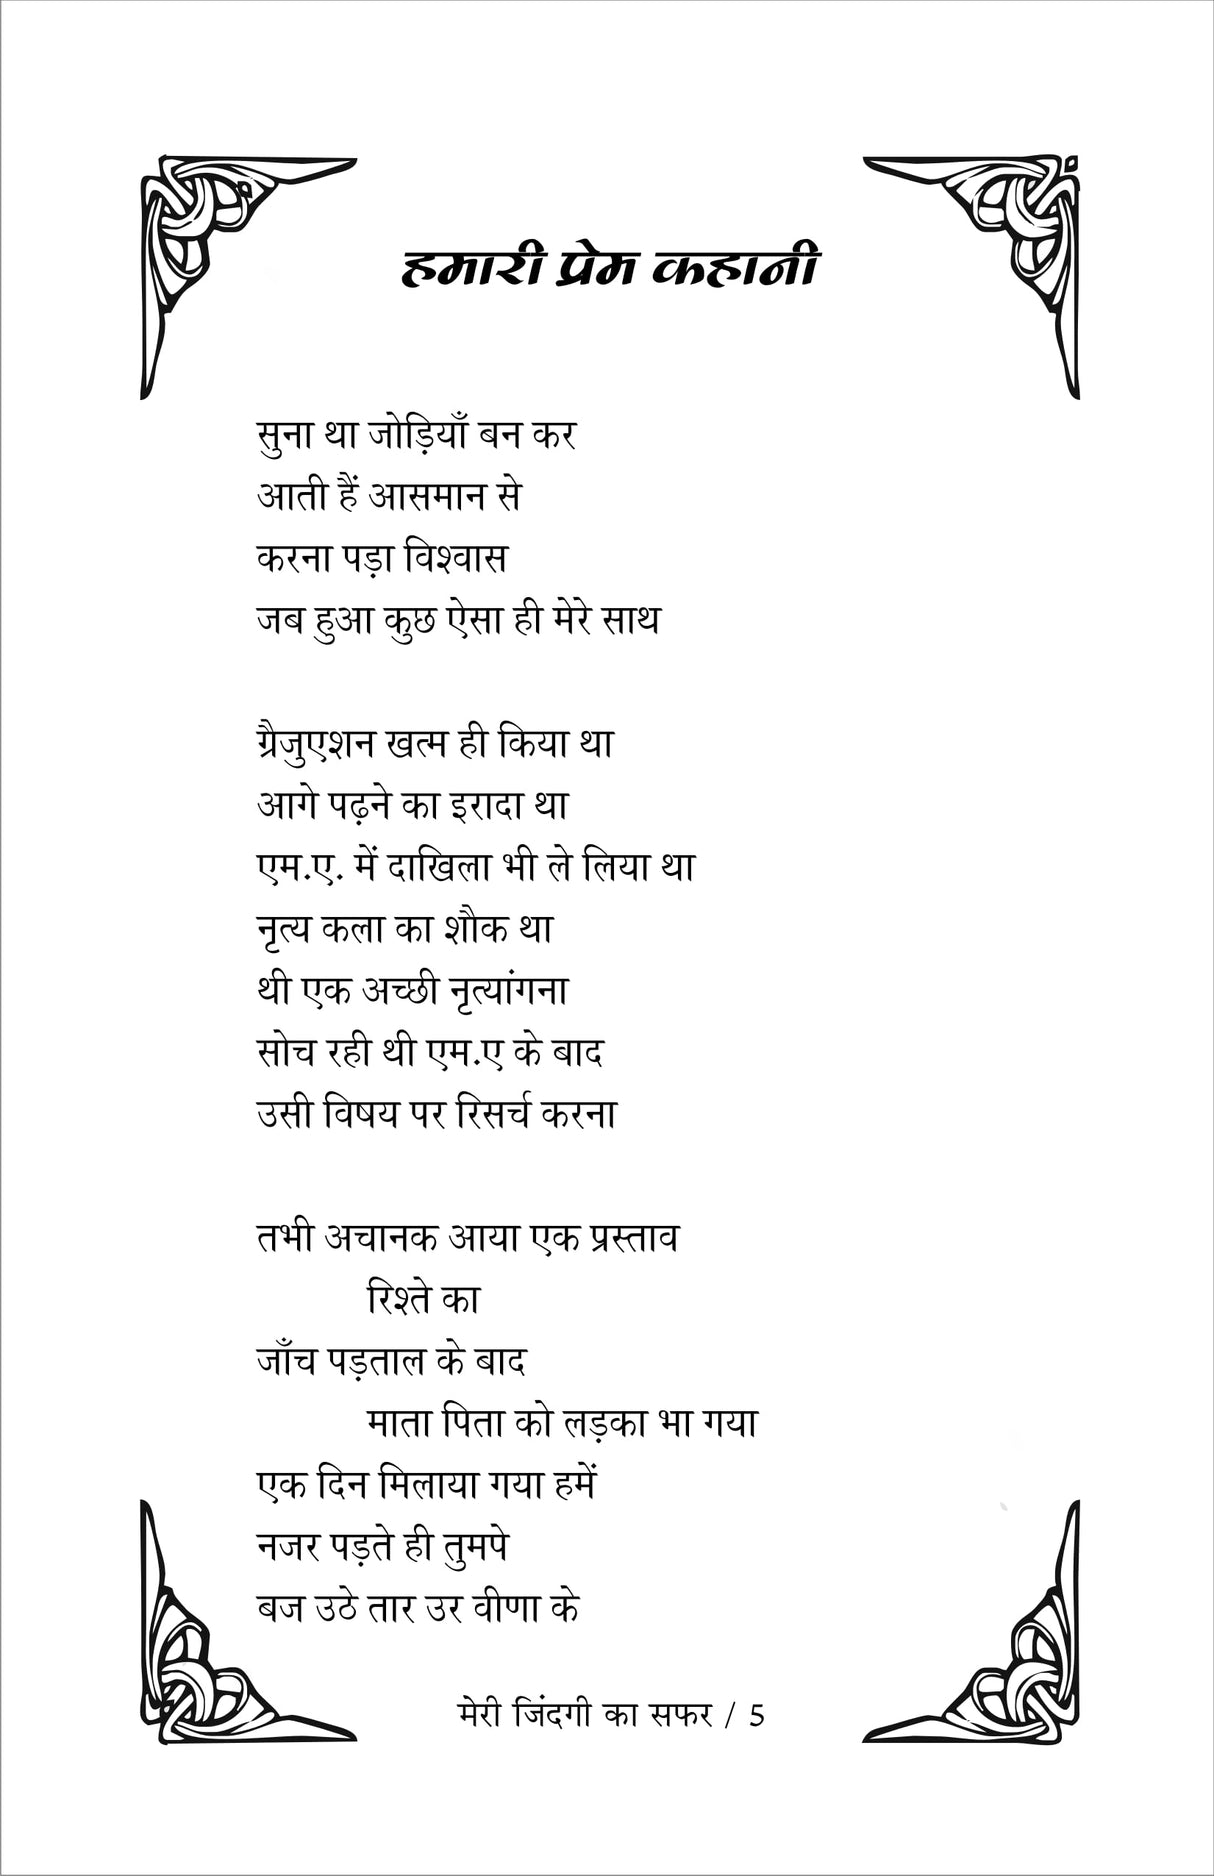 हमारी प्रेम कहानी
सुना था जोड़ियाँ बन कर
आती हैं आसमान से
करना पड़ा विश्वास
जब हुआ कुछ ऐसा ही मेरे साथ
ग्रैजुएशन खत्म ही किया था
आगे पढ़ने का इरादा था
एम.ए. में दाखिला भी ले लिया था
नृत्य कला का शौक था
थी एक अच्छी नृत्यांगना
सोच रही थी एम.ए के बाद
उसी विषय पर रिसर्च करना
तभी अचानक आया एक प्रस्ताव
रिश्ते का
जाँच पड़ताल के बाद
माता पिता को लड़का भा गया
एक दिन मिलाया गया हमें
नजर पड़ते ही तुमपे
बज उठे तार उर वीणा के
मेरी जिंदगी का सफर / 5